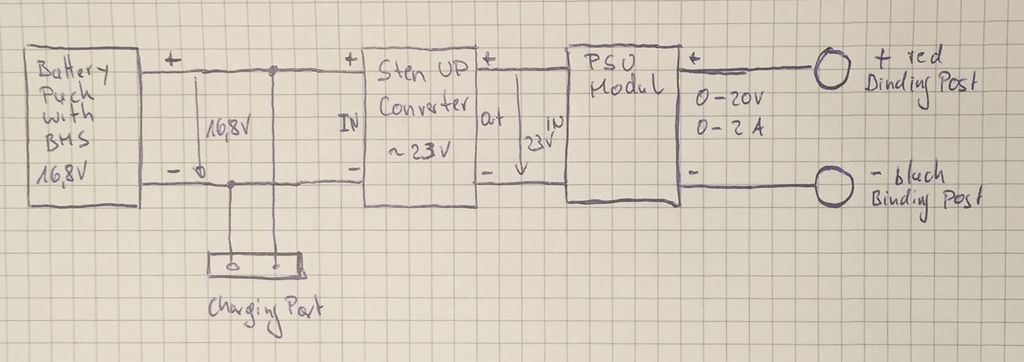 Battery
Pack
with
BMS
16,8V
+
-
16,8V
+
IN
-
Step UP
Converter
~23V
+
out
-
23V
IN
PSU
Modul
+
0-20V
0-2 A
-
+ red
Binding Post
- black
Binding Post
Charging Port